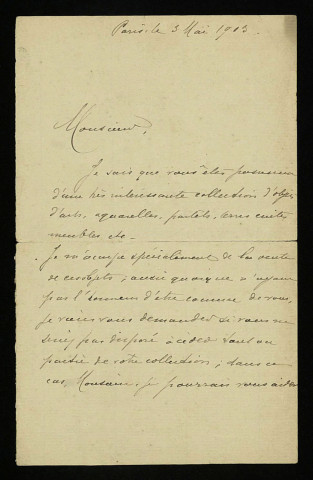 Paris le 3 Mai 1913.
Monsieur,
Je sais que vous êtes possesseur
d'une très intéressante collection d'objets
d'arts, aquarelles, pastels, terres cuites
meubles, etc.
Je m'occupe spécialement de la vente
de ces objets; aussi quoique n'ayant
pas l'honneur d'être connue de vous,
je viens vous demander si vous ne
seriez pas disposé à céder tout ou
partie de votre collection; dans ce
cas, Monsieur, je pourrais vous aider